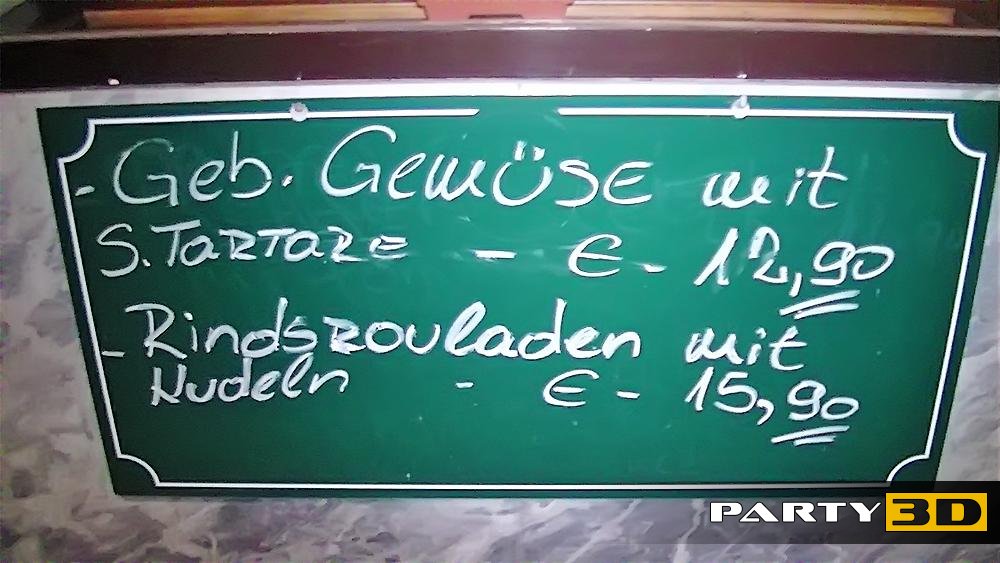 - Geb. Gemüse mit
S. Tartare - €- 12,90
- Rindsrouladen mit
Nudeln - €- 15,90
PARTY 3D